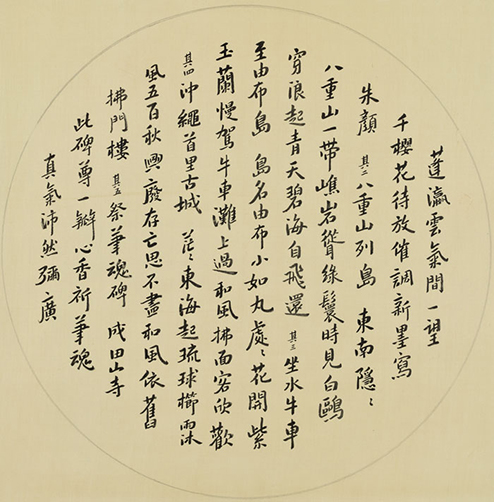 蓬瀛雲氣間一望
千櫻花待放催調新墨寫
朱顏 其二 八重山列島 東南隱々
八重山一帶嶕岩聳綠鬟時見白鷗
穿浪起青天碧海自飛還 其三 坐水牛車
至由布島 島名由布小如丸處々花開紫
玉蘭慢駕牛車灘上過和風拂面客欣歡
其四 沖繩首里古城 茫々東海起琉球櫛霖
風五百秋興廢存亡思不盡和風依舊
拂門樓 其五 祭筆魂碑 成田山寺
此碑尊一瓣心香祈筆魂
真氣沛然彌廣